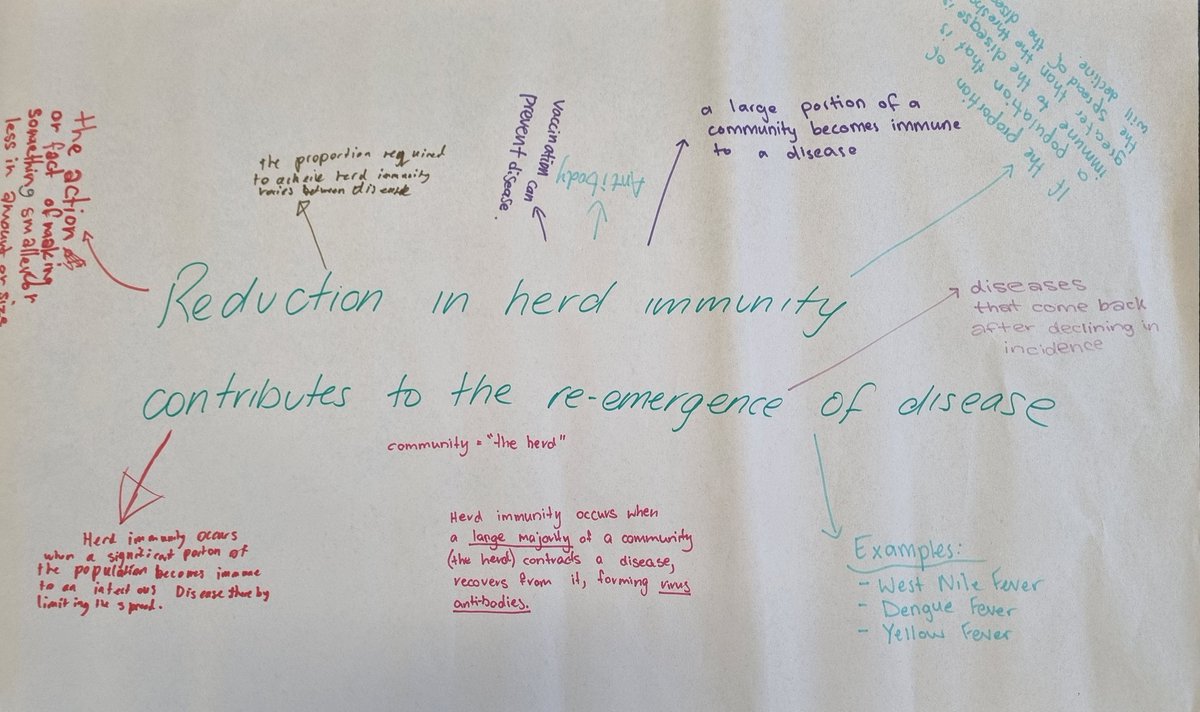 Reduction in herd immunity
contributes to the re-emergence of disease
the action
or fact of making
something smaller or
less in amount or size
the proportion required
to acheive herd immunity
varies between disease
vaccination can
prevent disease.
Antibody
a large portion of a
community becomes immune
to a disease
If the proportion of
a population that is
immune to the disease is
greater than the
the spread of
will decline.
diseases
that come back
after declining in
incidence
community = "the herd"
Herd immunity occurs
when a significat portion of
the population becomes immune
to an infectious Disease there by
limiting the spread.
Herd immunity occurs when
a large majority of a community
(the herd) contracts a disease,
recovers from it, forming virus
anti-bodies.
Examples:
- West Nile Fever
- Dengue Fever
- Yellow Fever